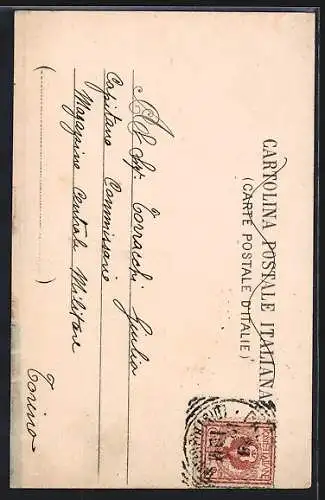 CARTOLINA POSTALE ITALIANA
(CARTE POSTALE D'ITALIE)
Torracchi Giulio
Capitano Commissario
Magazzino Centrale Militare
Torino